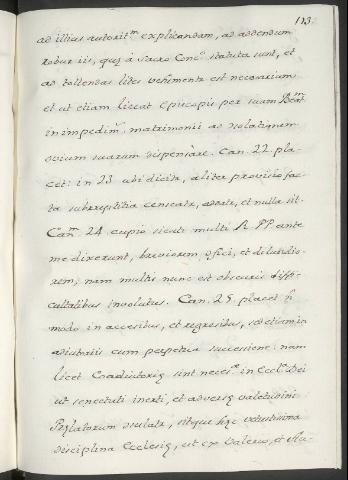 113.
ad illius autorit.m explicandam, ad addendum
robur iis, quę à Sacro Conc.o statuta sunt, et
ad tollendas lites vehementer est necessarium
et ut etiam liceat Episcopis per suam Beat.m
in impedim. matrimonii ad
ovium suarum dispensare. Can. 22. pla-
cet: in 23 ubi dicitur, aliter provisio fac-
ta subreptitia censeatur, addatur, et nulla sit.
Can.m 24 cupio sicuti multi R. PP. ante
me dixerunt, breviorem effici, et dilucidio-
rem; nam multi nunc est obscuris diffi-
cultatibus involutus. Can. 25. placet n
modo in accessibus, et regressibus, sed etiam in
adiutoriis cum perpetua successione: nam
licet Coadiutorię sint neces.ę in Eccl.a Dei
ut senectuti inerti, et adversę valetudini
Pręlatorum, sitque hęc vetustissima
disciplina Ecclesię, ut ex Valerio, et Au-